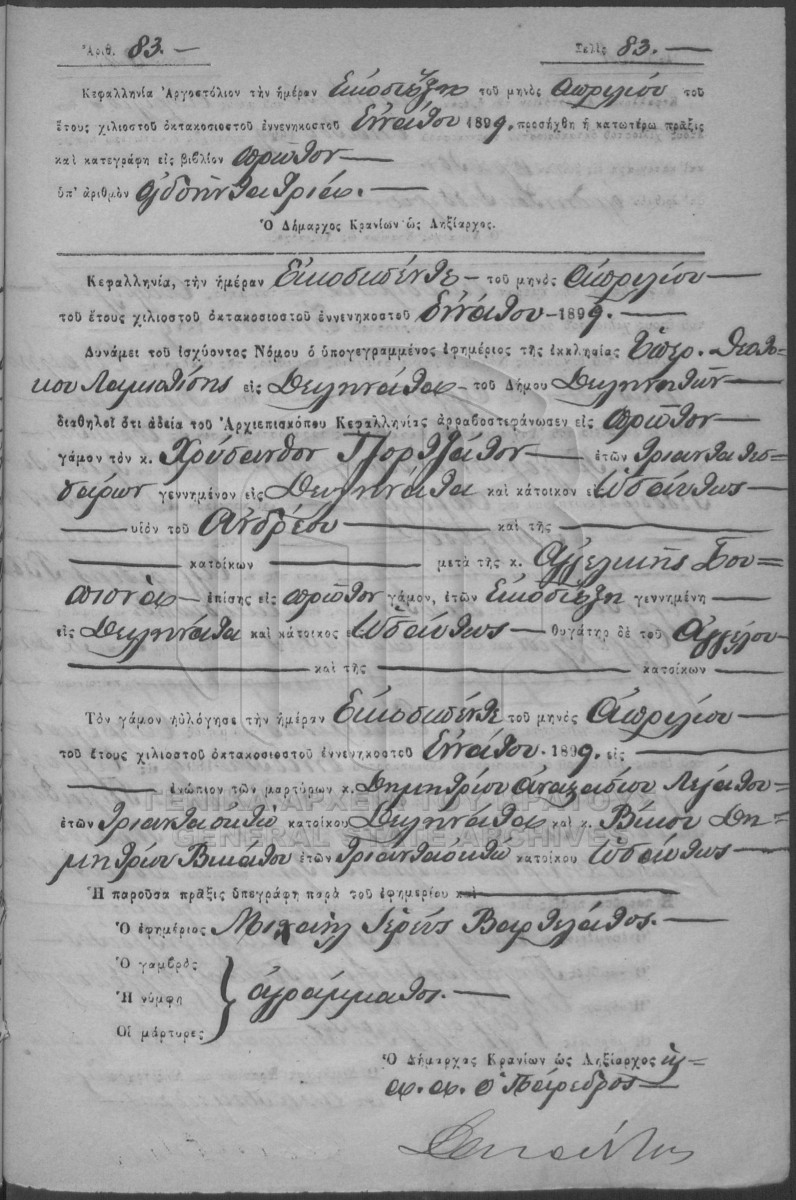 Ἀριθ. 83. — Σελὶς 83. —
Κεφαλληνία Ἀργοστόλιον τὴν ἡμέραν Εἰκοστὴ ἕξη τοῦ μηνὸς Ἀπριλίου τοῦ
ἔτους χιλιοστοῦ ὀκτακοσιοστοῦ ἐννενηκοστοῦ ἐννάτου 1899, προσήχθη ἡ κατωτέρω πρᾶξις
καὶ κατεγράφη εἰς βιβλίον πρῶτον —
ὑπ' ἀριθμὸν ὀγδοήντα τρία. —
Ὁ Δήμαρχος Κρανίων ὡς Ληξίαρχος.
Κεφαλληνία, τὴν ἡμέραν Εἰκοσιπέντε — τοῦ μηνὸς Ἀπριλίου —
τοῦ ἔτους χιλιοστοῦ ὀκτακοσιοστοῦ ἐννενηκοστοῦ ἐννάτου — 1899. —
Δυνάμει τοῦ ἰσχύοντος Νόμου ὁ ὑπογεγραμμένος ἐφημέριος τῆς ἐκκλησίας Ὑπερ. Θεοτό-
κου εἰς Δειλινάτα — τοῦ Δήμου Δειλινατῶν —
διαθηλοῖ ὅτι ἀδεία τοῦ Ἀρχιεπισκόπου Κεφαλληνίας ἀρραβοστεφάνωσεν εἰς πρῶτον —
γάμον τὸν κ. Χρύσανθον — ἐτῶν τριάντα τεσ-
σάρων γεννημένον εἰς Δειλινάτα καὶ κάτοικον εἰς ὡσαύτως —
— υἱὸν τοῦ Ἀνδρέου — καὶ τῆς —
— κατοίκων — μετὰ τῆς κ. Ἀγγελικῆς
— ἐπίσης εἰς πρῶτον γάμον, ἐτῶν Εἰκοσιέξη γεννημένη —
εἰς Δειλινάτα καὶ κάτοικος εἰς ὡσαύτως — θυγάτηρ δὲ τοῦ Ἀγγέλου —
— καὶ τῆς — κατοίκων —
Τὸν γάμον ηὐλόγησε τὴν ἡμέραν Εἰκοσιπέντε τοῦ μηνὸς Ἀπριλίου —
τοῦ ἔτους χιλιοστοῦ ὀκτακοσιοστοῦ ἐννενηκοστοῦ ἐννάτου. 1899. εἰς —
— ἐνώπιον τῶν μαρτύρων κ. Δημητρίου
ἐτῶν τριάντα ὀκτὼ κατοίκου Δειλινάτα καὶ κ. Βίκου Δη-
μητρίου Βικάτου ἐτῶν τριανταοκτὼ κατοίκου ὡσαύτως —
ΓΕΝΙΚΑ ΑΡΧΕΙΑ ΤΟΥ ΚΡΑΤΟΥΣ
GENERAL STATE ARCHIVES
Ἡ παροῦσα πρᾶξις ὑπεγράφη παρὰ τοῦ ἐφημερίου καὶ —
Ὁ ἐφημέριος Μιχαὴλ Ἱερεὺς Βαρθελάτος. —
Ὁ γαμβρὸς
Ἡ νύμφη ἀγράμματοι. —
Οἱ μάρτυρες
Ὁ Δήμαρχος Κρανίων ὡς Ληξίαρχος
α. α. ὁ Πάρεδρος